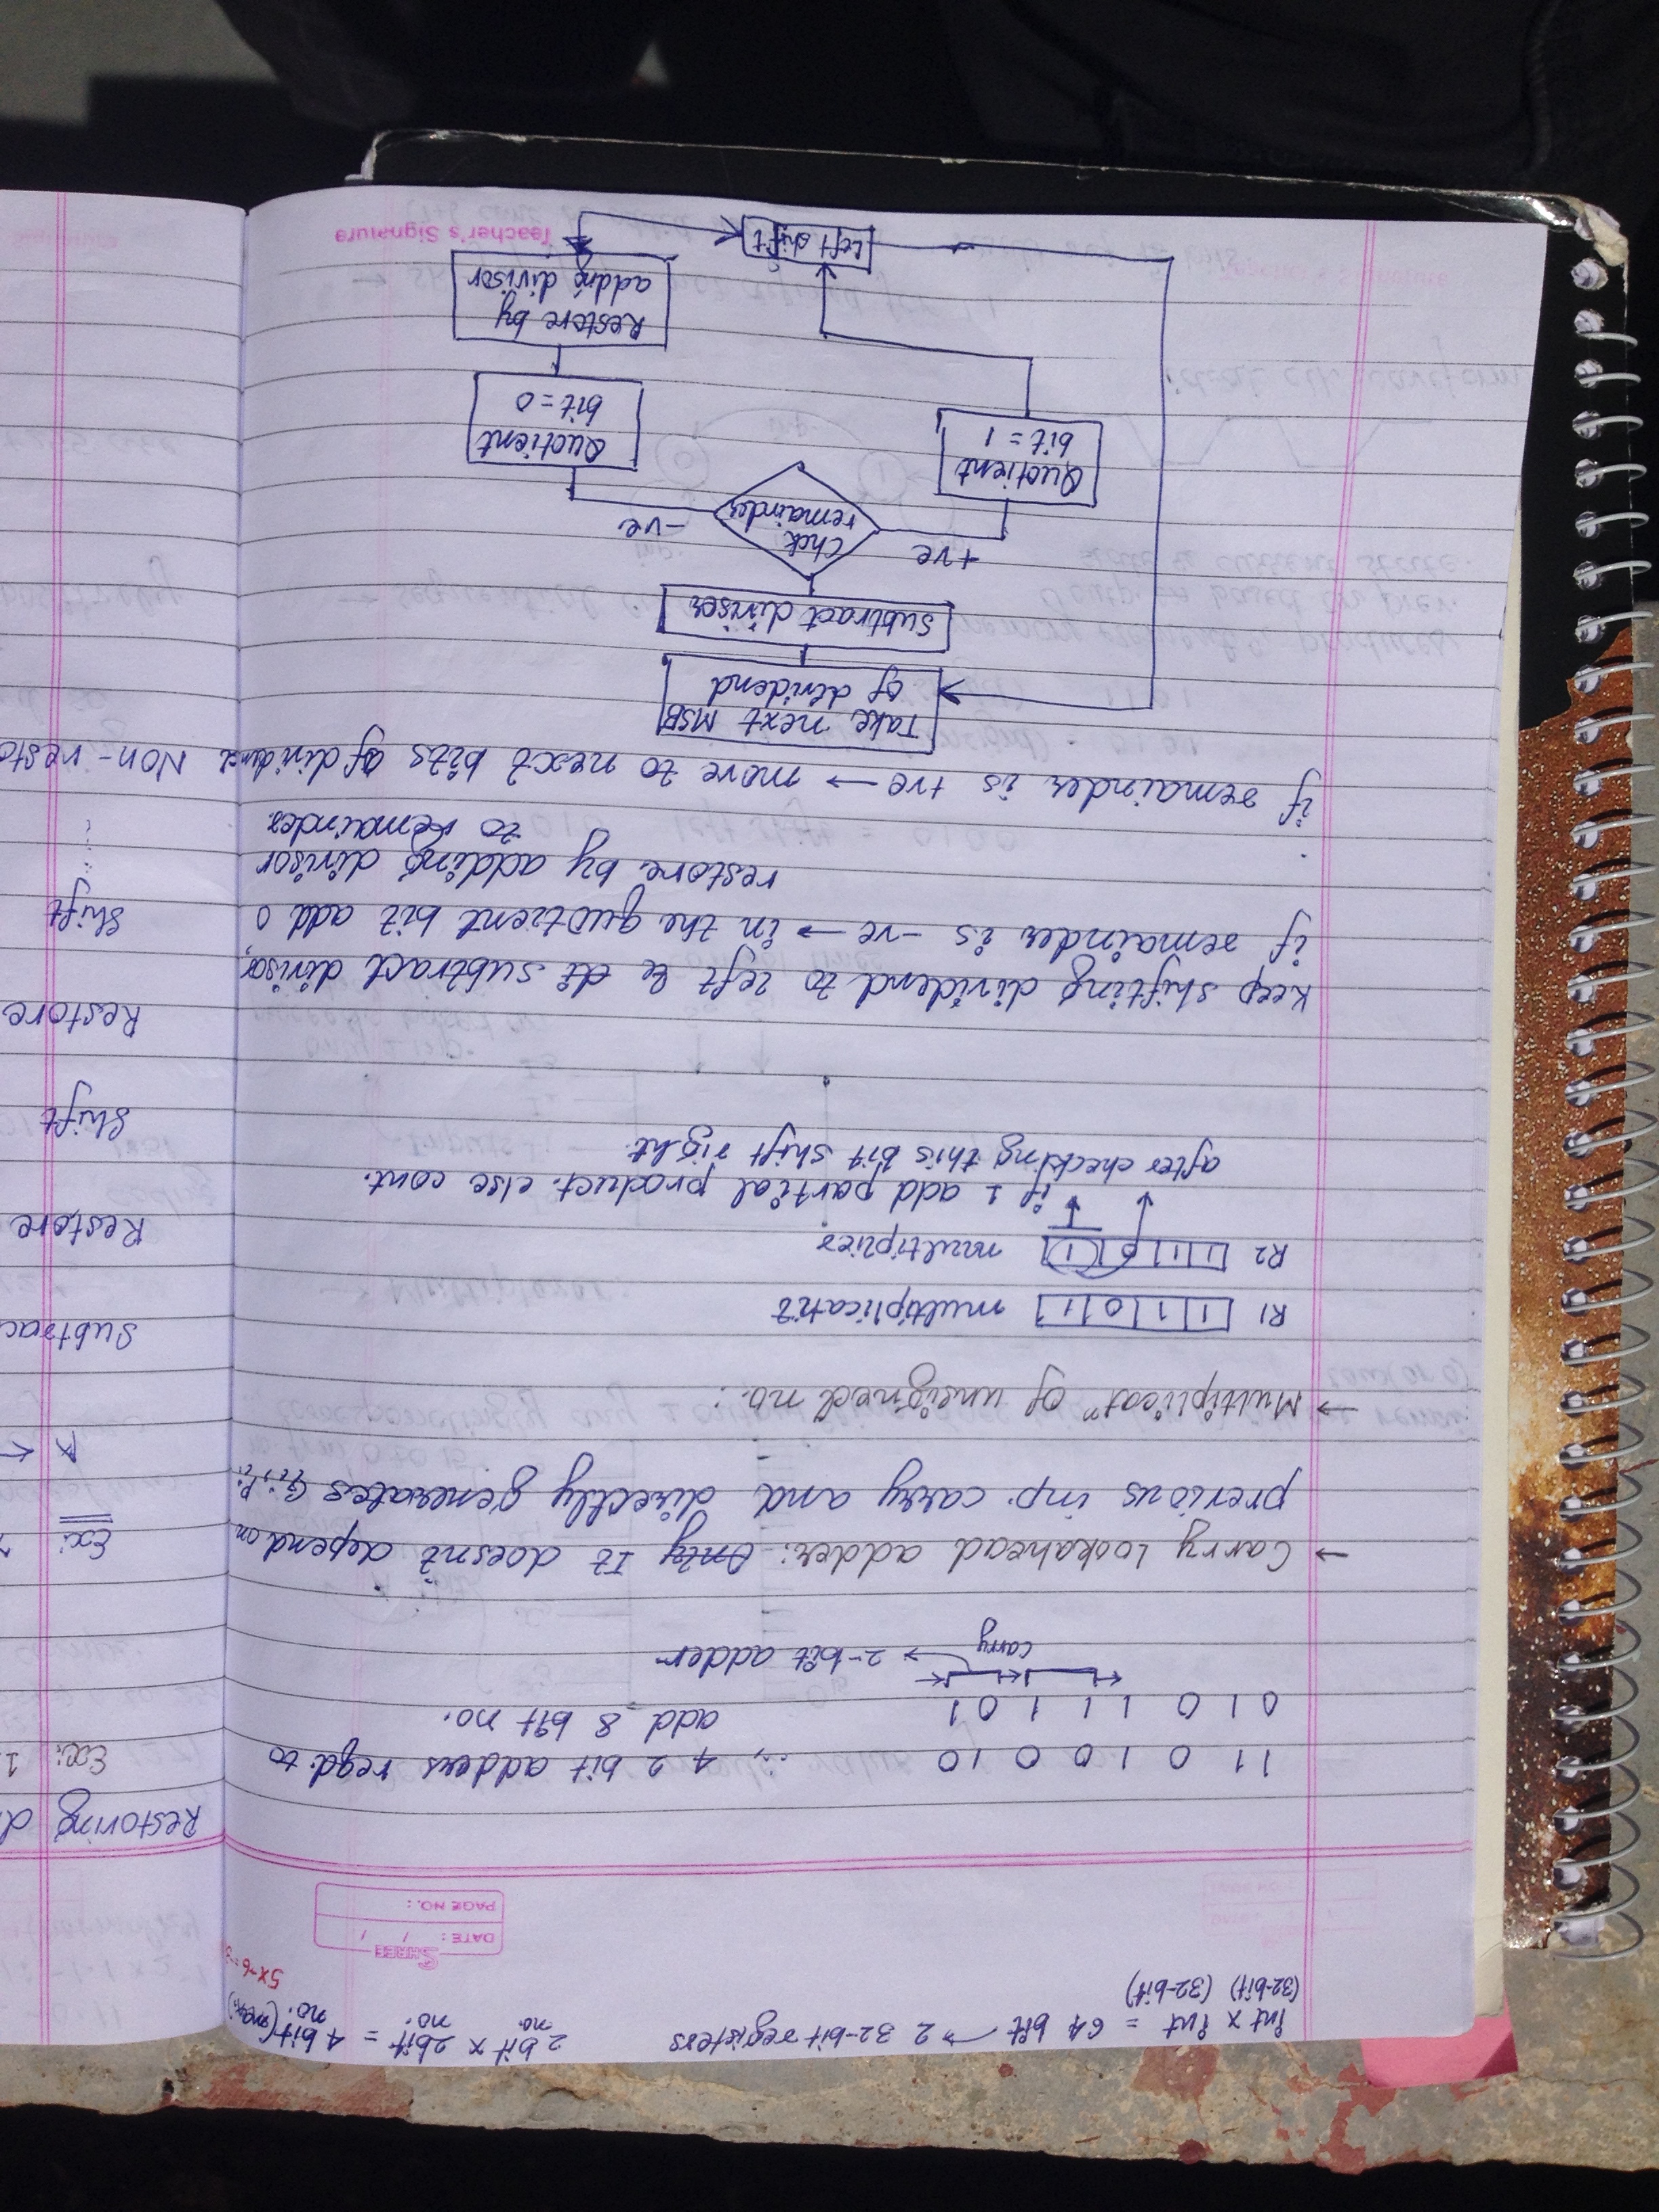 int x int = 64 bit → 2 32-bit registers
(32-bit) (32-bit)
2 bit x 2bit = 4 bit (max)
no. no. no.
5x-6=
SHREE
DATE: / /
PAGE NO.:
1 1 0 1 0 0 1 0 ∴, 4 2 bit adders reqd. to
0 1 0 1 1 1 0 1 add 8 bit no.
carry → 2-bit adder
→ Carry Lookahead adder: Only It doesn't depend on
previous inp. carry and directly generates Gi, Pi
→ Multiplicatⁿ of unsigned no.:
R1 1 1 0 1 multiplicatit
R2 1 1 0 1 multiplier
if 1 add partial product. else cont.
after checking this bit shift right.
Keep shifting dividend to left & di subtract divisor,
if remainder is -ve → in the quotient bit add 0
restore by adding divisor
to remainder.
if remainder is +ve → move to next bits of dividend
Take next MSB
of dividend
Subtract divisor
Chck
remainder
+ve
-ve
Quotient
bit = 1
Quotient
bit = 0
Restore by
addng divisor
Left shift
Teacher's Signature
Restoring d
Ex: 1.
Ex:
A ←
Subtrac
Restore
Shift
Restore
Shift
Non-resto